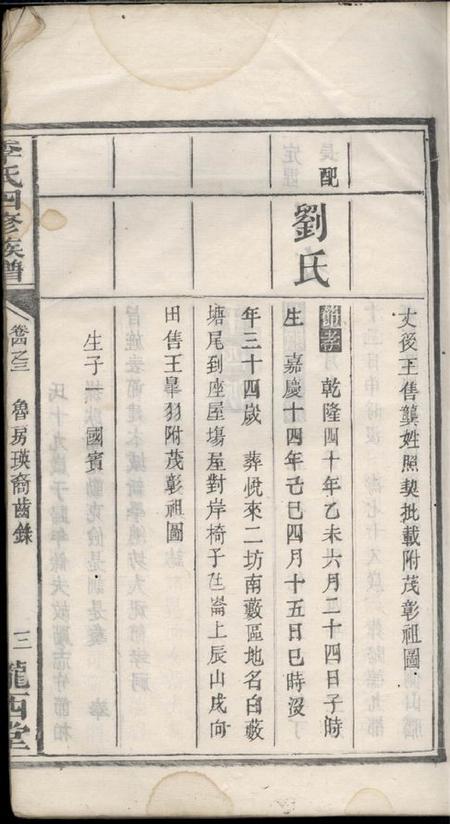 丈後王售龔姓照契批載附茂彰祖圖
配
劉氏
節孝 乾隆四十年乙未六月二十四日子時
生 嘉慶十四年己巳四月十五日巳時沒
年三十四歲 葬悅來二坊南藪區地名白藪
塘尾到座屋塲屋對岸椅子㘭崙上辰山戌向
田售王臯羽附茂彰祖圖
生子一 國賓
李氏四修族譜 卷四之三 魯房瑛裔齒錄 三 隴西堂